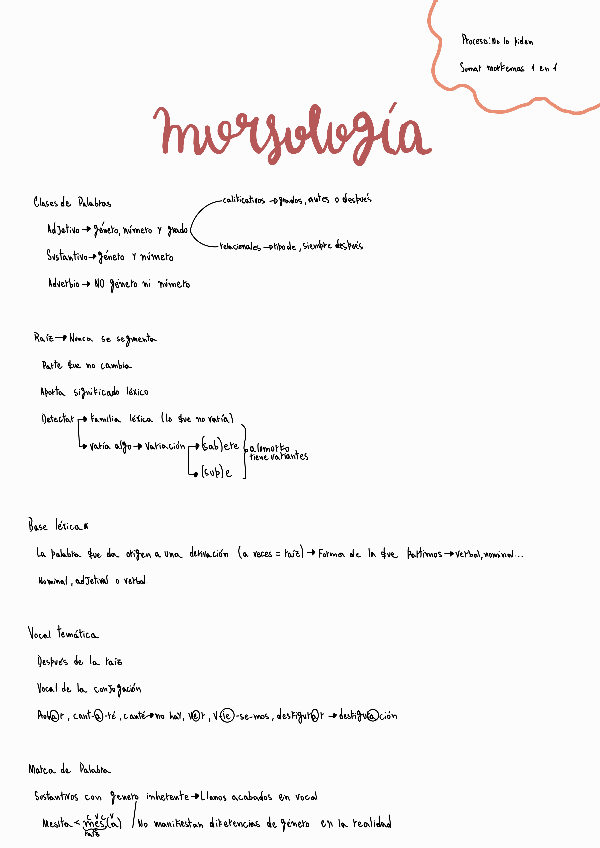 Proceso: No lo piden
Sumar morfemas 1 en 1
morfología
Clases de Palabras
calificativos → grados, antes o después
Adjetivo → género, número y grado
relacionales → tipo de, siempre después
Sustantivo → género y número
Adverbio → NO género ni número
Raíz → Nunca se segmenta
Parte que no cambia
Aporta significado léxico
Detectar → Familia léxica (lo que no varía)
varía algo → variación → (sab)ere
alomorfo
tiene variantes
→ (sup)e
Base léxica*
La palabra que da origen a una derivación (a veces = raíz) → Forma de la que partimos → verbal, nominal...
Nominal, adjetival o verbal
Vocal temática
Después de la raíz
Vocal de la conjugación
, cant-a-ré, canté → no hay, ver, v-ie-se-mos, desfigurar → desfiguración
Marca de Palabra
Sustantivos con genero inherente → Llanos acabados en vocal
C V C V
Mesita < mes(a) / No manifiestan diferencias de género en la realidad
raíz